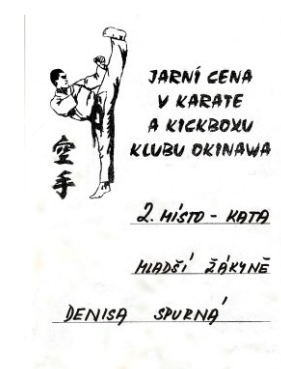 JARNÍ CENA
V KARATE
A KICKBOXU
KLUBU OKINAWA
空手
2. MÍSTO - KATA
MLADŠÍ ŽÁKYNĚ
DENISA SPURNÁ